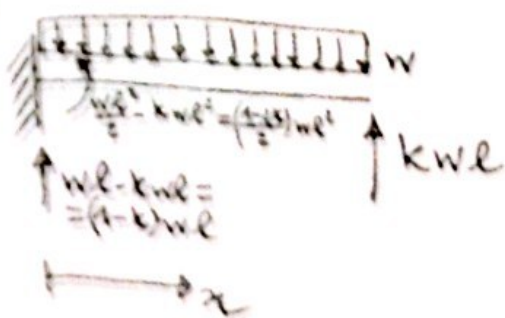 w
wl²/2 - kwl² = (1-2k/2)wl²
kwl
wl-kwl=
=(1-k)wl
x